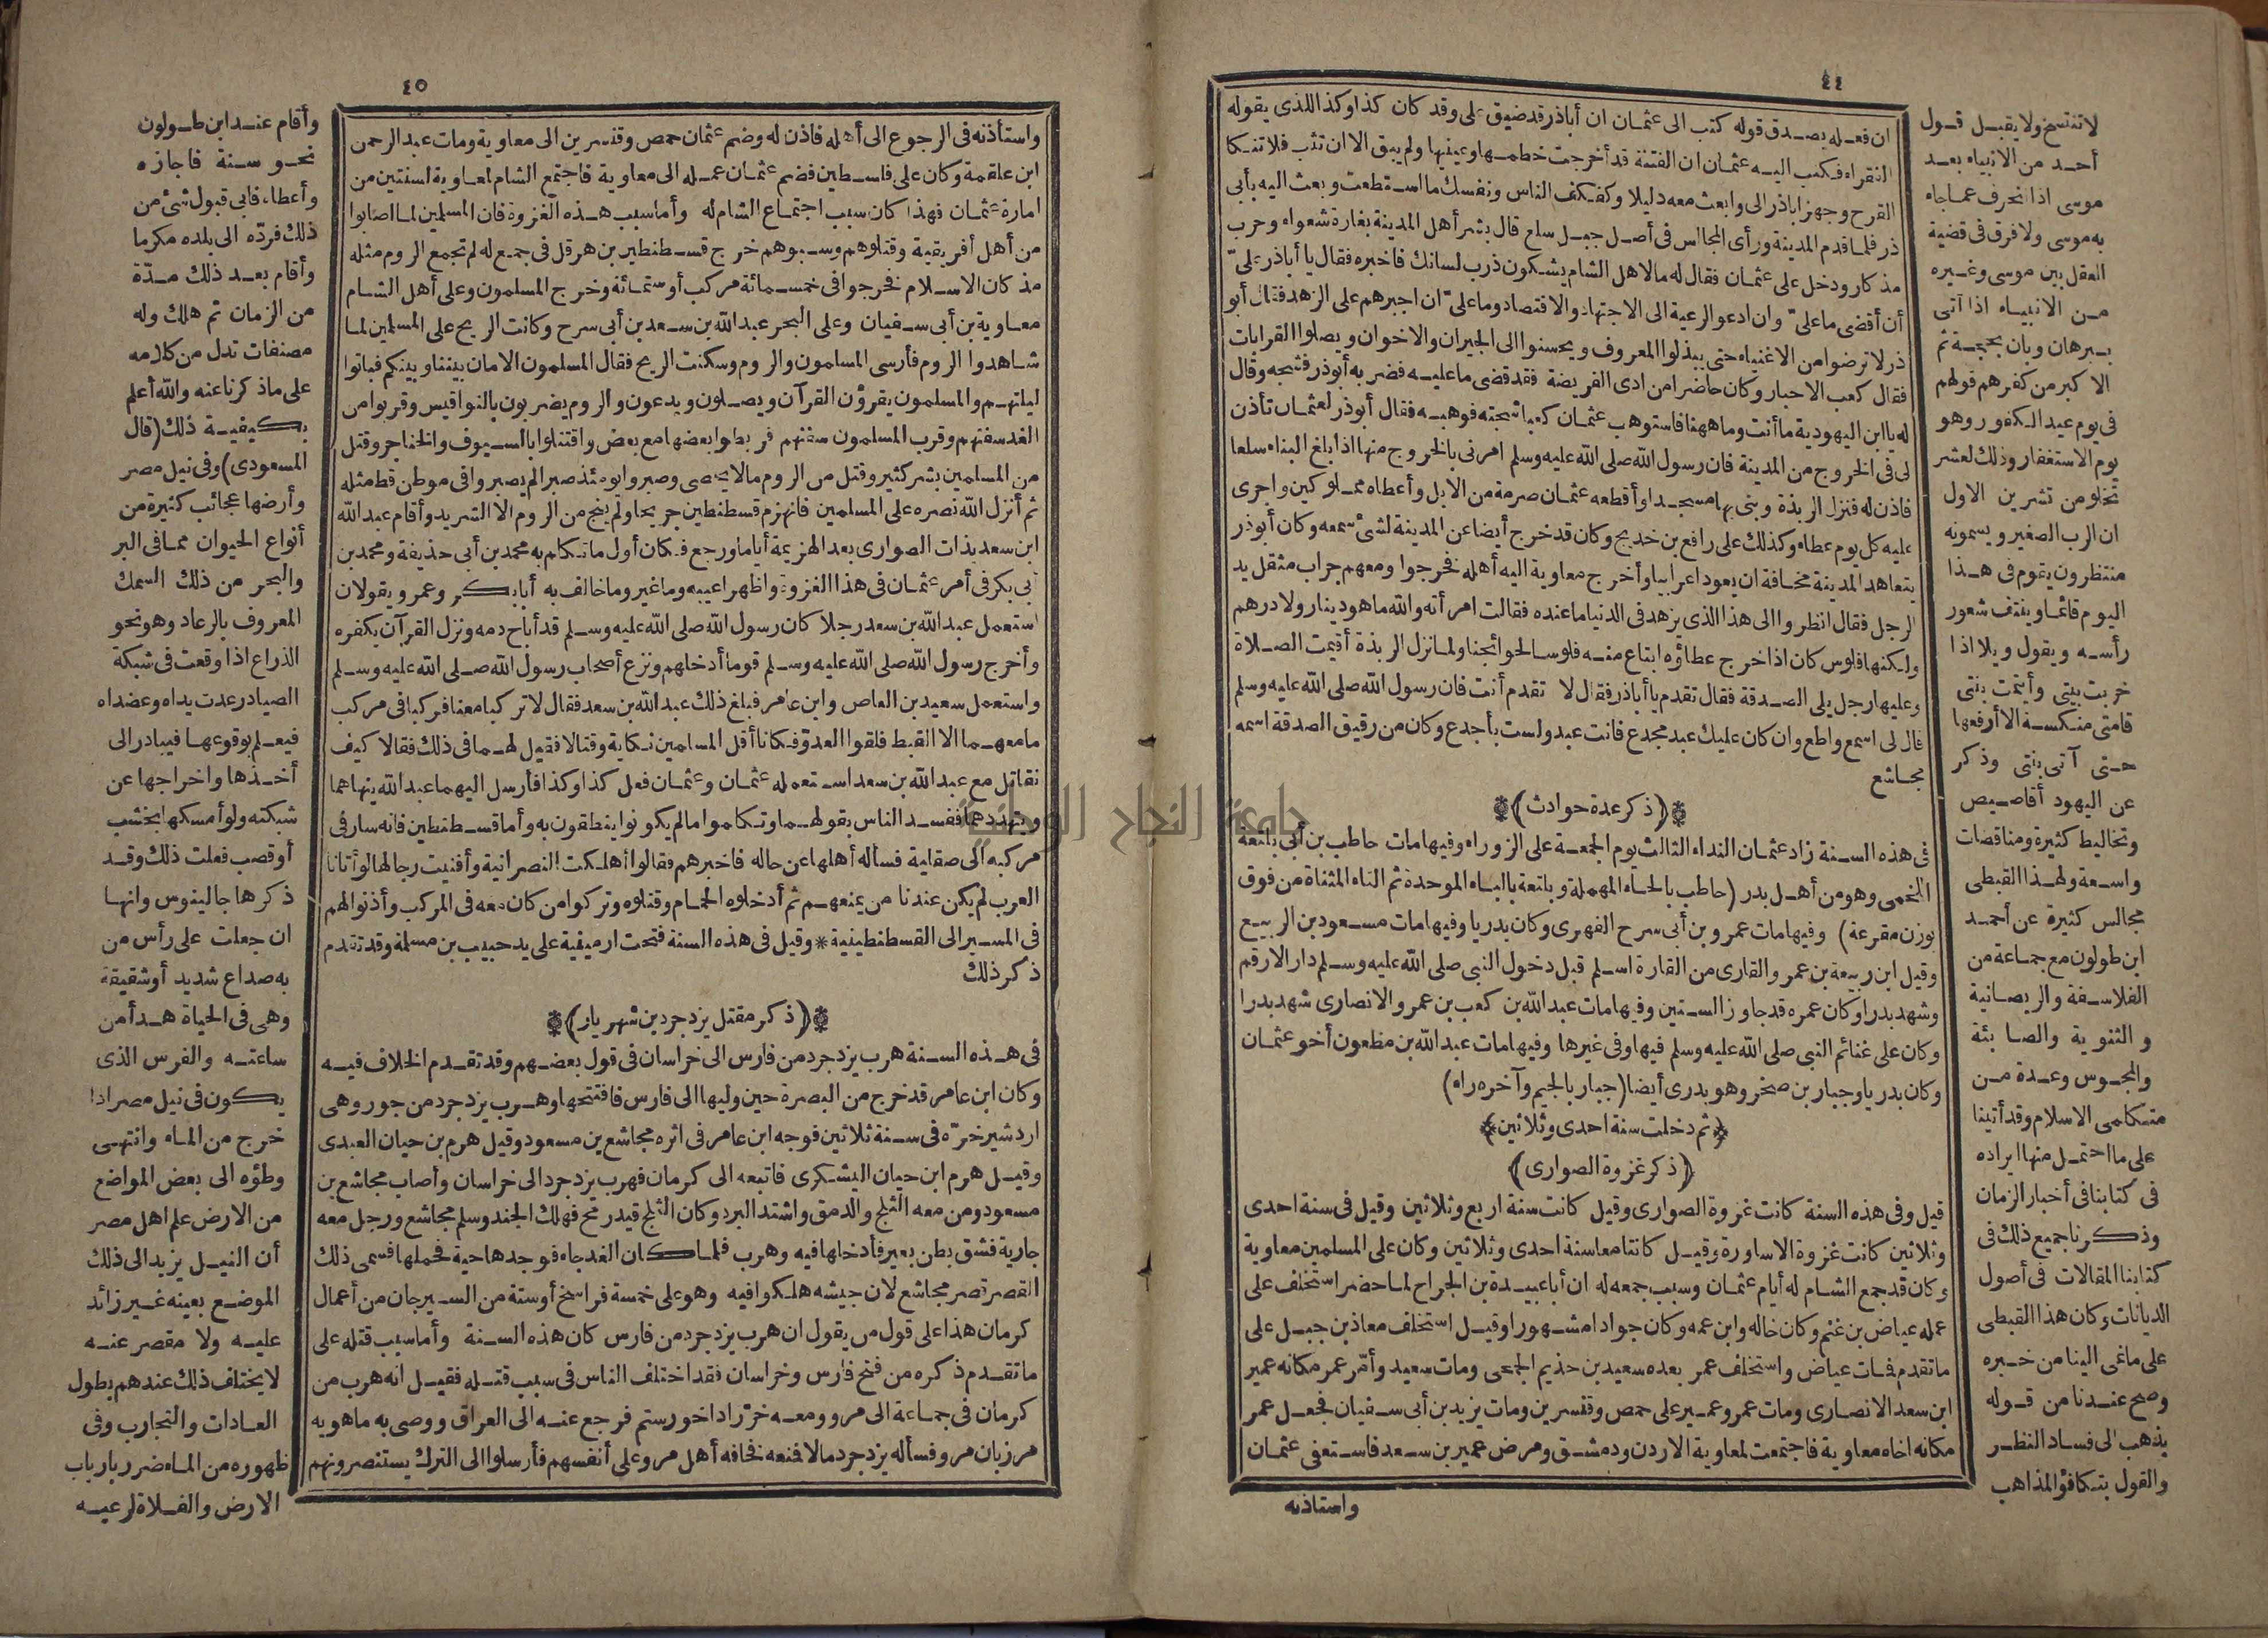 ٤٤
ان فعله بصدق قوله كتب الى عثمان ان أباذر قد ضيق على وقد كان كذا وكذا للذى يقوله
الفقراء فكتب اليه عثمان ان الفتنة قد أخرجت خطمها وعينيها ولم يبق الا ان تثب فلا تنكا
القرح وجهز اباذر الى وابعث معه دليلا وكفكف الناس ونفسك ما استطعت وبعث اليه بأبى
ذر فلما قدم المدينة ورأى المجالس فى أصل جبل سلع قال بشر أهل المدينة بغارة شعواء وحرب
مذكار ودخل على عثمان فقال له ما لاهل الشام يشكون ذرب لسانك فاخبره فقال يا أباذر علىّ
أن أقضى ما علىّ وان ادعو الرعية الى الاجتهاد والاقتصاد وما علىّ ان اجبرهم على الزهد فقال أبو
ذر لا ترضوا من الاغنياء حتى يبذلوا المعروف ويحسنوا الى الجيران والاخوان ويصلوا القرابات
فقال كعب الاحبار وكان حاضرا من ادى الفريضة فقد قضى ما عليه فضربه أبوذر فشجه وقال
له يا ابن اليهودية ما أنت وما ههنا فاستوهب عثمان كعبا شجته فوهبه فقال أبوذر لعثمان تأذن
لى فى الخروج من المدينة فان رسول الله صلى الله عليه وسلم امرنى بالخروج منها اذا بلغ البناء سلعا
فاذن له فنزل الربذة وبنى بها مسجدا وأقطعه عثمان صرمة من الابل وأعطاه مملوكين واجرى
عليه كل يوم عطاء وكذلك على رافع بن خديج وكان قد خرج أيضا عن المدينة لشئ سمعه وكان أبوذر
يتعاهد المدينة مخافة ان يعود اعرابيا وأخرج معاوية اليه أهله فخرجوا ومعهم جراب مثقل يد
الرجل فقال انظروا الى هذا الذى يزهد فى الدنيا ما عنده فقالت امرأته والله ما هو دينار ولا درهم
ولكنها فلوس كان اذا خرج عطاؤه ابتاع منه فلوسا لحوائجنا ولما نزل الربذة أقيمت الصلاة
وعليها رجل يلى الصدقة فقال تقدم يا أباذر فقال لا تقدم أنت فان رسول الله صلى الله عليه وسلم
قال لى اسمع واطع وان كان عليك عبد مجدع فانت عبد ولست بأجدع وكان من رقيق الصدقة اسمه
مجاشع
﴿ذكر عدة حوادث﴾
فى هذه السنة زاد عثمان النداء الثالث يوم الجمعة على الزوراء وفيها مات حاطب بن أبى بلتعة
اللخمى وهو من أهل بدر (حاطب بالحاء المهملة وبلتعة بالباء الموحدة ثم التاء المثناة من فوق
بوزن مقرعة) وفيها مات عمرو بن أبى سرح الفهرى وكان بدريا وفيها مات مسعود بن الربيع
وقيل ابن ربيعة بن عمرو القارى من القارة اسلم قبل دخول النبى صلى الله عليه وسلم دار الارقم
وشهد بدرا وكان عمره قد جاوز الستين وفيها مات عبد الله بن كعب بن عمرو الانصارى شهد بدرا
وكان على غنائم النبى صلى الله عليه وسلم فيها وفى غيرها وفيها مات عبد الله بن مظعون أخو عثمان
وكان بدريا وجبار بن صخر وهو بدرى أيضا (جبار بالجيم وآخره راء)
﴿ثم دخلت سنة احدى وثلاثين﴾
﴿ذكر غزوة الصوارى﴾
قيل وفى هذه السنة كانت غزوة الصوارى وقيل كانت سنة اربع وثلاثين وقيل فى سنة احدى
وثلاثين كانت غزوة الاساورة وقيل كانتا معا سنة احدى وثلاثين وكان على المسلمين معاوية
وكان قد جمع الشام له أيام عثمان وسبب جمعه له ان أبا عبيدة بن الجراح لما حضر استخلف على
عمله عياض بن غنم وكان خاله وابن عمه وكان جوادا مشهورا وقيل استخلف معاذ بن جبل على
ما تقدم فمات عياض واستخلف عمر بعده سعيد بن حذيم الجمحى ومات سعيد وأمّر عمر مكانه عمير
ابن سعد الانصارى ومات عمر وعمير على حمص وقنسرين ومات يزيد بن أبى سفيان فجعل عمر
مكانه اخاه معاوية فاجتمعت لمعاوية الاردن ودمشق ومرض عمير بن سعد فاستعفى عثمان
واستاذنه
لا تنتسخ ولا يقبل قول
أحد من الانبياء بعد
موسى اذا انحرف عما جاء
به موسى ولا فرق فى قضية
العقل بين موسى وغيره
من الانبياء اذا أتى
ببرهان وبان بحجة ثم
الاكبر من كفرهم قولهم
فى يوم عيد الكفور وهو
يوم الاستغفار وذلك لعشر
تخلو من تشرين الاول
ان الرب الصغير ويسمونه
منتظرون يقوم فى هذا
اليوم قائما وينتف شعور
رأسه ويقول ويلا اذا
خربت بيتى وأيتمت بنتى
قامتى منكسة لا أرفعها
حتى آتى بنتى وذكر
عن اليهود أقاصيص
وتخاليط كثيرة ومناقضات
واسعة ولهذا القبطى
مجالس كثيرة عن أحمد
ابن طولون مع جماعة من
الفلاسفة والربصانية
والثنوية والصابئة
والمجوس وعدة من
متكلمى الاسلام وقد أتينا
على ما احتمل منها ايراده
فى كتابنا فى أخبار الزمان
وذكرنا جميع ذلك فى
كتابنا المقالات فى أصول
الديانات وكان هذا القبطى
على ما نمى الينا من خبره
وصح عندنا من قوله
يذهب الى فساد النظر
والقول بتكافؤ المذاهب
٤٥
واستأذنه فى الرجوع الى أهله فاذن له وضم عثمان حمص وقنسرين الى معاوية ومات عبد الرحمن
ابن علقمة وكان على فلسطين فضم عثمان عمله الى معاوية فاجتمع الشام لمعاوية لسنتين من
امارة عثمان فهذا كان سبب اجتماع الشام له وأما سبب هذه الغزوة فان المسلمين لما اصابوا
من أهل أفريقية وقتلوهم وسبوهم خرج قسطنطين بن هرقل فى جمع له لم تجمع الروم مثله
مذ كان الاسلام فخرجوا فى خمسمائة مركب أو ستمائة وخرج المسلمون وعلى أهل الشام
معاوية بن أبى سفيان وعلى البحر عبد الله بن سعد بن أبى سرح وكانت الريح على المسلمين لما
شاهدوا الروم فأرسى المسلمون والروم وسكنت الريح فقال المسلمون الامان بيننا وبينكم فباتوا
ليلتهم والمسلمون يقرؤن القرآن ويصلون ويدعون والروم يضربون بالنواقيس وقربوا من
الغد سفنهم وقرب المسلمون سفنهم فربطوا بعضها مع بعض واقتتلوا بالسيوف والخناجر وقتل
من المسلمين بشر كثير وقتل من الروم ما لا يحصى وصبروا يومئذ صبرا لم يصبروا فى موطن قط مثله
ثم أنزل الله نصره على المسلمين فانهزم قسطنطين جريحا ولم ينج من الروم الا الشريد وأقام عبد الله
ابن سعد بذات الصوارى بعد الهزيمة أياما ورجع فكان أول ما تكلم به محمد بن أبى حذيفة ومحمد بن
أبى بكر فى أمر عثمان فى هذا الغزوة واظهرا عيبه وما غير وما خالف به أبابكر وعمر ويقولان
استعمل عبد الله بن سعد رجلا كان رسول الله صلى الله عليه وسلم قد أباح دمه ونزل القرآن بكفره
وأخرج رسول الله صلى الله عليه وسلم قوما أدخلهم ونزع أصحاب رسول الله صلى الله عليه وسلم
واستعمل سعيد بن العاص وابن عامر فبلغ ذلك عبد الله بن سعد فقال لا تركبا معنا فركبا فى مركب
ما معهما الا القبط فلقوا العدوّ فكانا أقل المسلمين نكاية وقتالا فقيل لهما فى ذلك فقالا كيف
نقاتل مع عبد الله بن سعد استعمله عثمان وعثمان فعل كذا وكذا فأرسل اليهما عبد الله ينهاهما
ويتهددهما ففسد الناس بقولهما وتكلموا ما لم يكونوا ينطقون به وأما قسطنطين فانه سار فى
مركبه الى صقلية فسأله أهلها عن حاله فاخبرهم فقالوا أهلكت النصرانية وأفنيت رجالها لو أتانا
العرب لم يكن عندنا من يمنعهم ثم أدخلوه الحمام وقتلوه وتركوا من كان معه فى المركب وأذنوا لهم
فى المسير الى القسطنطينية * وقيل فى هذه السنة فتحت ارمينية على يد حبيب بن مسلمة وقد تقدم
ذكر ذلك
﴿ذكر مقتل يزدجرد بن شهريار﴾
فى هذه السنة هرب يزدجرد من فارس الى خراسان فى قول بعضهم وقد تقدم الخلاف فيه
وكان ابن عامر قد خرج من البصرة حين وليها الى فارس فافتتحها وهرب يزدجرد من جور وهى
اردشير خرّه فى سنة ثلاثين فوجه ابن عامر فى اثره مجاشع بن مسعود وقيل هرم بن حيان العبدى
وقيل هرم ابن حيان اليشكرى فاتبعه الى كرمان فهرب يزدجرد الى خراسان وأصاب مجاشع بن
مسعود ومن معه الثلج والدمق واشتد البرد وكان الثلج قيد رمح فهلك الجند وسلم مجاشع ورجل معه
جارية فشق بطن بعير فأدخلها فيه وهرب فلما كان الغد جاء فوجدها حية فحملها فسمى ذلك
القصر قصر مجاشع لان جيشه هلكوا فيه وهو على خمسة فراسخ أو ستة من السيرجان من أعمال
كرمان هذا على قول من يقول ان هرب يزدجرد من فارس كان هذه السنة وأما سبب قتله على
ما تقدم ذكره من فتح فارس وخراسان فقد اختلف الناس فى سبب قتله فقيل انه هرب من
كرمان فى جماعة الى مرو ومعه خرّزاد اخو رستم فرجع عنه الى العراق ووصى به ماهويه
مرزبان مرو فسأله يزدجرد مالا فمنعه فخافه أهل مرو على أنفسهم فأرسلوا الى الترك يستنصرونهم
وأقام عند ابن طولون
نحو سنة فاجازه
وأعطاه فابى قبول شئ من
ذلك فردّه الى بلده مكرما
وأقام بعد ذلك مدّة
من الزمان ثم هلك وله
مصنفات تدل من كلامه
على ما ذكرنا عنه والله أعلم
بكيفية ذلك (قال
المسعودى) وفى نيل مصر
وأرضها عجائب كثيرة من
أنواع الحيوان مما فى البر
والبحر من ذلك السمك
المعروف بالرعاد وهو نحو
الذراع اذا وقعت فى شبكة
الصياد رعدت يداه وعضداه
فيعلم بوقوعها فيبادر الى
أخذها واخراجها عن
شبكته ولو أمسكها بخشب
أو قصب فعلت ذلك وقد
ذكرها جالينوس وانها
ان جعلت على رأس من
به صداع شديد أو شقيقة
وهى فى الحياة هدأ من
ساعته والفرس الذى
يكون فى نيل مصر اذا
خرج من الماء وانتهى
وطؤه الى بعض المواضع
من الارض علم اهل مصر
أن النيل يزيد الى ذلك
الموضع بعينه غير زائد
عليه ولا مقصر عنه
لا يختلف ذلك عندهم بطول
العادات والتجارب وفى
ظهوره من الماء ضرر بارباب
الارض والغلاة لرعيه
جامعة النجاح الوطنية